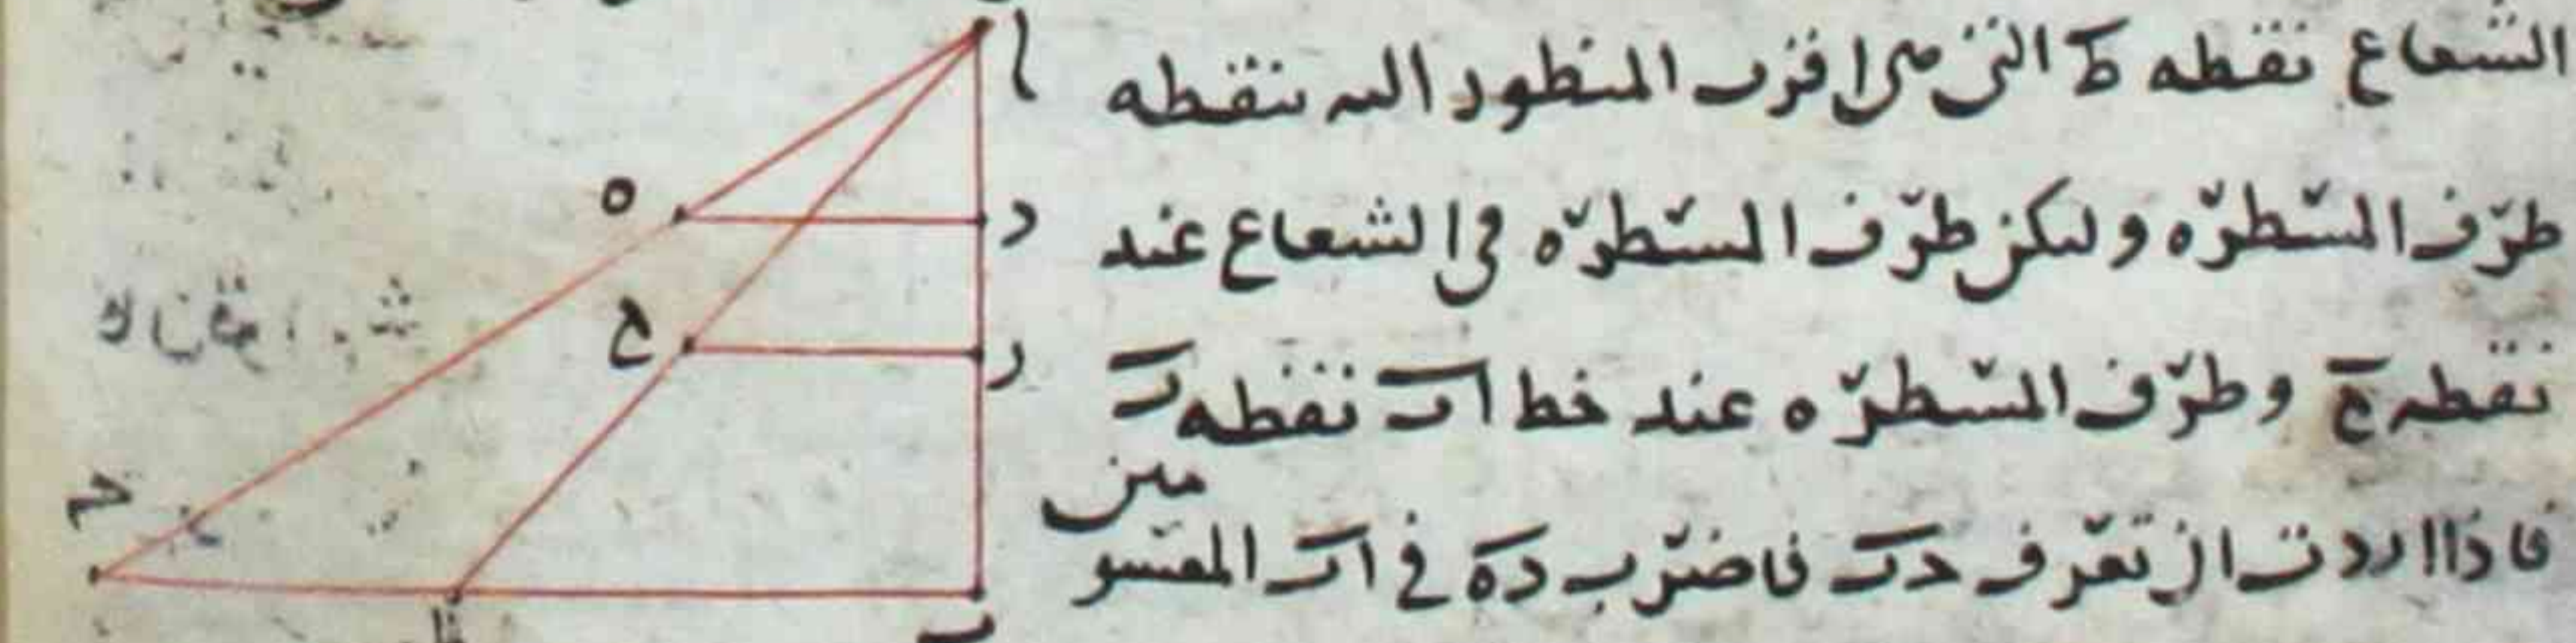 الشعاع نقطه ط التى هى اقرب المنظور اليه بنقطه
طرف المسطره وليكن طرف المسطره في الشعاع عند
نقطه ح وطرف المسطره عند خط اب نقطه ر
فاذا اردت ان تعرف حب فاضرب ده في اب المقسو
مين
ا
ه
د
ح
ر
ح
ط
ب